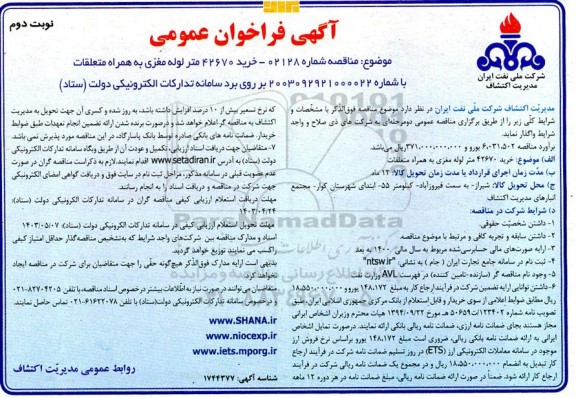 آگهی فراخوان عمومی
نوبت دوم
موضوع: مناقصه شماره ۰۲۱۲۸ - خرید ۴۲۶۷۰ متر لوله مغزی به همراه متعلقات
با شماره ۲۰۰۳۰۹۲۹۲۱۰۰۰۰۲۲ بر روی برد سامانه تدارکات الکترونیکی دولت (ستاد)
شرکت ملی نفت ایران
مدیریت اکتشاف
مدیریّت اکتشاف شرکت ملّی نفت ایران در نظر دارد موضوع مناقصه فوق‌الذکر با مشخّصات و
شرایط کلّی زیر را از طریق برگزاری مناقصه عمومی دومرحله‌ای به شرکت های ذی صلاح و واجد
شرایط واگذار نماید.
برآورد مناقصه ۶،۰۳۱،۵۰۲ یورو و ۳۷۱،۰۰۰،۰۰۰،۰۰۰ریال می‌باشد.
الف) موضوع: خرید ۴۲۶۷۰ متر لوله مغزی به همراه متعلقات
ب) مدّت زمان اجرای قرارداد یا مدت زمان تحویل کالا: ۱۲ ماه
ج) محل تحویل کالا: شیراز- به سمت فیروزآباد- کیلومتر ۵۵- ابتدای شهرستان کوار- مجتمع
انبارهای مدیریت اکتشاف
د) شرایط شرکت در مناقصه:
۱- داشتن شخصیّت حقوقی.
۲- داشتن سابقه و تجربه کافی و مرتبط با موضوع مناقصه
۳- ارایه صورت‌های مالی حسابرسی‌شده مربوط به سال مالی ۱۴۰۰ به بعد
۴- ثبت نام در سامانه جامع تجارت ایران ( جام ) به نشانی: "ntsw.ir"
۵- وجود نام مناقصه گر (سازنده-تامین کننده) در فهرست AVL وزارت نفت
۶- داشتن توانایی ارایه تضمین شرکت در فرآیند ارجاع کار به مبلغ ۱۴۸،۱۷۲ یورو و ۱۸،۵۵۰،۰۰۰،۰۰۰
ریال مطابق ضوابط اعلامی از سوی خریدار و قابل استعلام از بانک مرکزی جمهوری اسلامی ایران. طبق
تصویب نامه شماره ۱۲۳۴۰۲/ت۵۰۶۵۹هـ مورخ ۱۳۹۴/۰۹/۲۲ هیأت محترم وزیران اشخاص ایرانی
مجاز هستند بجای ضمانت نامه ارزی، ضمانت نامه ریالی بانکی ارائه نمایند. درصورت تمایل اشخاص
ایرانی به ارائه ضمانت نامه بانکی ریالی، ضروری است مبلغ ۱۴۸،۱۷۲ یورو براساس نرخ فروش ارز
موجود در سامانه معاملات الکترونیکی ارز (ETS) در روز تسلیم ضمانت نامه شرکت در فرآیند ارجاع
کار تبدیل به انضمام ۱۸،۵۵۰،۰۰۰،۰۰۰ ریال و در مجموع یک ضمانت نامه ریالی شرکت در فرآیند
ارجاع کار ارائه شود. ضمناً در صورت ارائه ضمانت نامه ریالی، مبلغ ضمانت نامه در هر دوره ۱۲ ماهه
که نرخ تسعیر بیش از ۱۰ درصد افزایش داشته باشد، به روز شده و کسری آن جهت تحویل به مدیریت
اکتشاف به مناقصه گر اعلام خواهد شد و درصورت برنده شدن ارائه تضمین انجام تعهدات طبق ضوابط
خریدار. ضمانت نامه های بانکی صادره توسط بانک پاسارگاد، در این مناقصه مورد پذیرش نمی باشد.
۷- متقاضیان جهت دریافت اسناد ارزیابی، تکمیل و عودت آن از طریق وبگاه سامانه تدارکات الکترونیکی
دولت (ستاد) به آدرس www.setadiran.ir اقدام نمایند. لازم به ذکراست مناقصه گران در صورت
عدم عضویت قبلی در سامانه مذکور، مراحل ثبت نام در سایت فوق و دریافت گواهی امضای الکترونیکی
جهت شرکت در مناقصه و دریافت اسناد را به انجام رسانند.
مهلت دریافت استعلام ارزیابی کیفی مناقصه گران در سامانه تدارکات الکترونیکی دولت (ستاد):
۱۴۰۳/۰۴/۲۴
مهلت تحویل استعلام ارزیابی کیفی در سامانه تدارکات الکترونیکی دولت (ستاد): ۱۴۰۳/۰۵/۰۷
اسناد و مدارک مناقصه بین شرکت‌های واجد شرایط که به‌تشخیص مناقصه‌گذار حداقل امتیاز کیفی
راکسب می نمایند توزیع خواهد گردید.
بدیهی است ارایه مدارک فوق‌الذکر هیچ‌گونه حقّی را جهت متقاضیان برای شرکت در مناقصه ایجاد
نخواهد کرد.
متقاضیان می‌توانند در صورت نیاز به اطلاعات بیشتر درخصوص اسناد مناقصه، با تلفن ۸۲۷۰۴۲۰۵-۰۲۱
و درخصوص سامانه تدارکات الکترونیکی دولت(ستاد) با تلفن ۶۱۶۲۲۰۷۸-۰۲۱ تماس حاصل نمایند.
www.SHANA.ir
www.niocexp.ir
www.iets.mporg.ir
شناسه آگهی: ۱۷۴۴۳۷۷
روابط عمومی مدیریّت اکتشاف
ParsNamadData